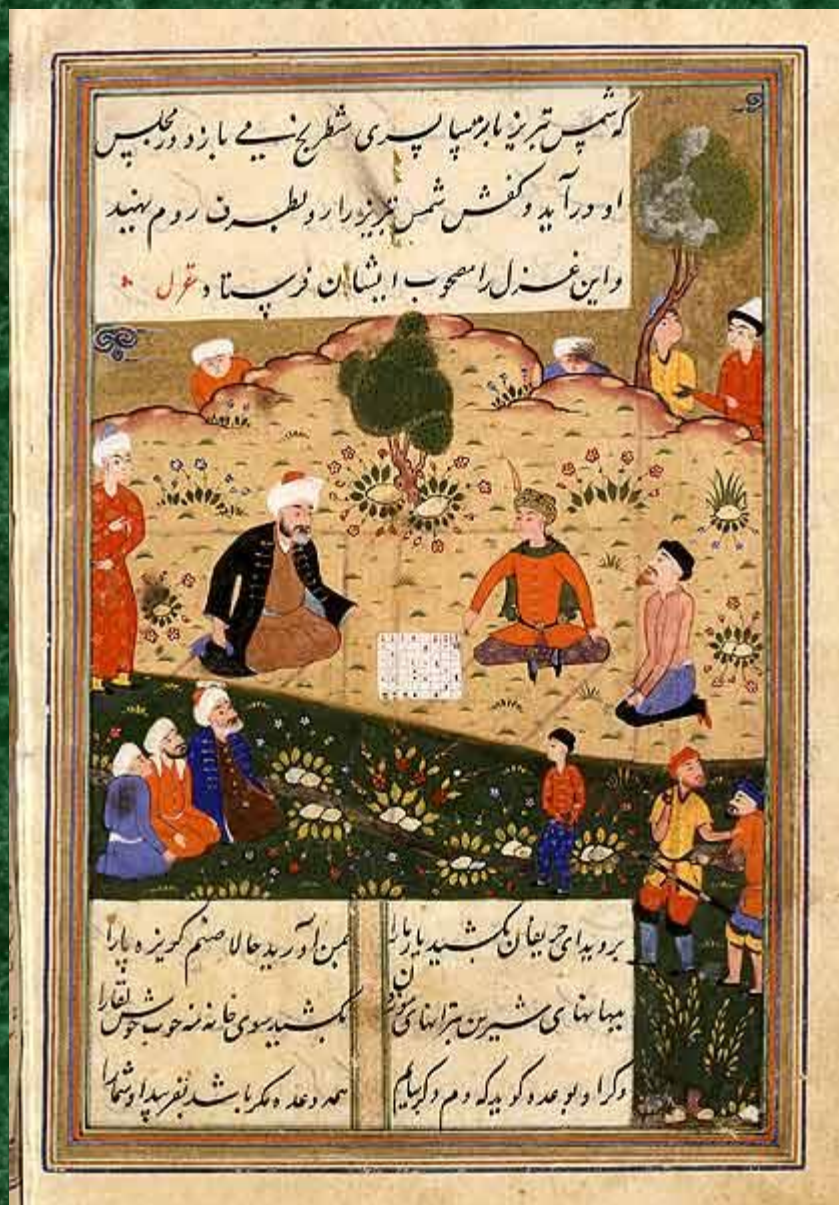 که شمس تبریز با ترسا پسری شطرنج می بازد در مجلس
او درآید و کفش شمس تبریز را رو بطرف روم بنهید
و این غزل را مصحوب ایشان فرستاد غزل
بروید ای حریفان بکشید یار ما را
بمن آورید حالا صنم گریزپا را
ببهانهای شیرین بترانهای موزون
بکشید سوی خانه مه خوب خوش لقا را
وگر او بوعده گوید که دم دگر بیایم
همه وعده مکر باشد بفریبد او شما را